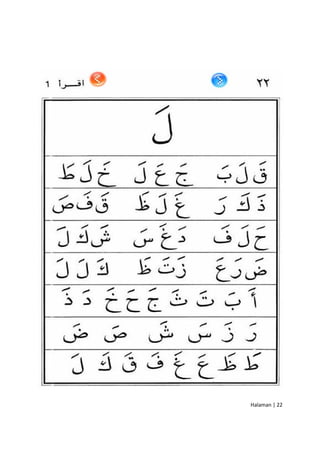 ٢٢ اقـــرأ ١
لَ
قَ لَ بَ جَ عَ لَ خَ لَ طَ
ذَ كَ رَ غَ لَ ظَ قَ فَ صَ
حَ لَ فَ دَ غَ سَ شَ كَ لَ
ضَ رَ عَ زَ تَ ظَ كَ لَ لَ
أَ بَ تَ ثَ جَ حَ خَ دَ ذَ
رَ زَ سَ شَ صَ ضَ
طَ ظَ عَ غَ فَ قَ كَ لَ
Halaman | 22